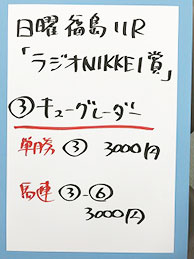 日曜福島11R
「ラジオNIKKEI賞」
③キューグレーダー
単勝 ③ 3000円
馬連 ③-⑥
3000円